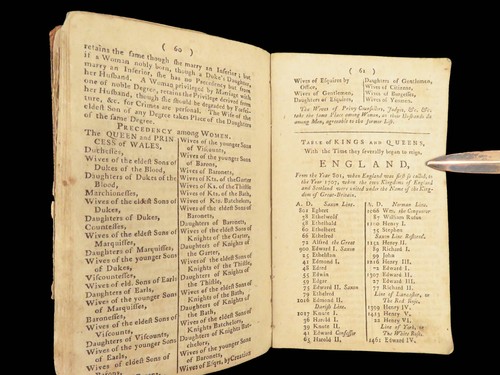 ( 60 )
retains the same though she marry an Inferior; but
if a Woman nobly born, though a Duke's Daughter,
marry an Inferior, she has no Precedency but from
her Husband. A Woman privileged by Marriage with
one of noble Degree, retains the Privilege derived from
her Husband, though she should be degraded by Forfei-
ture, &c. for Crimes are personal. The Wife of the
eldest Son of any Degree takes Place of the Daughters
of the same Degree.
PRECEDENCY among WOMEN.
The QUEEN and PRIN
CESS of WALES,
Dutchesses,
Wives of the eldest Sons of
Dukes of the Blood,
Daughters of Dukes of the
Blood,
Marchionesses,
Wives of the eldest Sons of
Dukes,
Daughters of Dukes,
Countesses,
Wives of the eldest Sons of
Marquisses,
Daughters of Marquisses,
Wives of the younger Sons
of Dukes,
Viscountesses,
Wives of eld. Sons of Earls
Daughters of Earls,
Wives of the younger Sons
of Marquisses,
Baronesses,
Wives of the eldest Sons of
Viscounts,
Daughters of Viscounts,
Wives of the younger Sons
of Earls,
Wives of the eldest Sons of
Wives of the younger Sons
of Viscounts,
Wives of the younger Sons
of Barons,
Wives of Baronets,
Wives of Kts. of the Garter
Wives of Kts. of the Thistle
Wives of Kts. of the Bath,
Wives of Kts. Batchelors,
Wives of the eldest Sons of
Baronets,
Daughters of Baronets,
Wives of the eldest Sons of
Knights of the Garter,
Daughters of Knights of
the Garter,
Wives of the eldest Sons of
Knights of the Thistle,
Daughters of Knights of
the Thistle,
Wives of the eldest Sons of
Knights of the Bath,
Daughters of Knights of
the Bath,
Wives of the eldest Sons of
Knights Batchelors,
Daughters of Knights
Batchelors,
Wives of the younger Sons
of Baronets,
Wives of Esqrs. by Creation
( 61 )
Wives of Esquires by
Office,
Wives of Gentlemen,
Daughters of Esquires,
Daughters of Gentlemen,
Wives of Citizens,
Wives of Burgesses,
Wives of Yeomen.
The Wives of Privy Counsellors, Judges, &c. &c.
take the same Place among Women, as their Husbands do
among Men, agreeable to the former Lists.
TABLE of KINGS and QUEENS,
With the Time they severally began to reign,
ENGLAND,
From the Year 801, when England was first so called, to
the Year 1707, when the two Kingdoms of England
and Scotland were united under the Name of the King-
dom of Great-Britain.
A. D. Saxon Line.
801 Egbert
38 Ethelwolf
58 Ethelbald
60 Ethelbert
66 Ethelred
72 Alfred the Great
900 Edward I. Saxon
25 Ethelstan
41 Edmund I.
48 Edred
55 Edwin
59 Edgar
75 Edward II.
79 Ethelred
1016 Edmond II.
Danish Line.
1017 Knute I.
36 Harold I.
39 Knute II.
41 Edward Confessor
65 Harold II.
A. D. Norman Line.
1066 Wm. the Conqueror
87 William Rufus
1100 Henry I.
35 Stephen
Saxon Line Restored.
1154 Henry II.
89 Richard I.
99 John
1216 Henry III.
72 Edward I.
Edward II.
Edward III.
77 Richard II.
Line of Lancaster, or
The Red Rose.
Henry IV.
Henry V.
22 Henry VI.
Line of York, or
The White Rose.
1461 Edward IV.